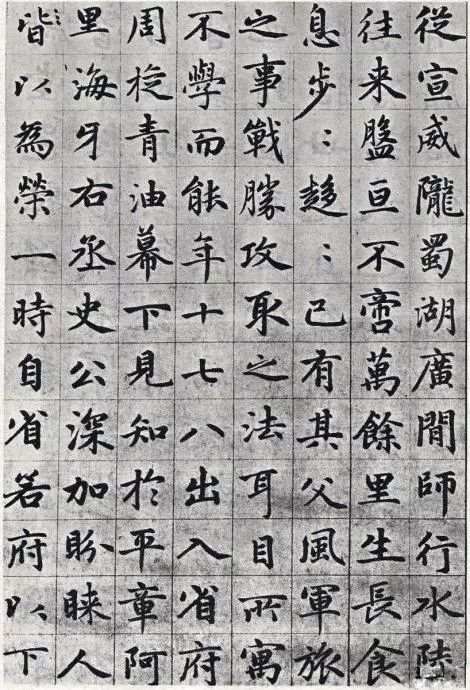 從宣威隴蜀湖廣閒師行水陸
往来盤亘不啻萬餘里生長食
息步〻趍〻已有其父風軍旅
之事戰勝攻取之法耳目所寓
不學而能年十七八出入省府
周旋青油幕下見知於平章阿
里海牙右丞史公深加盼睞人
皆以為榮一時自省若府以下